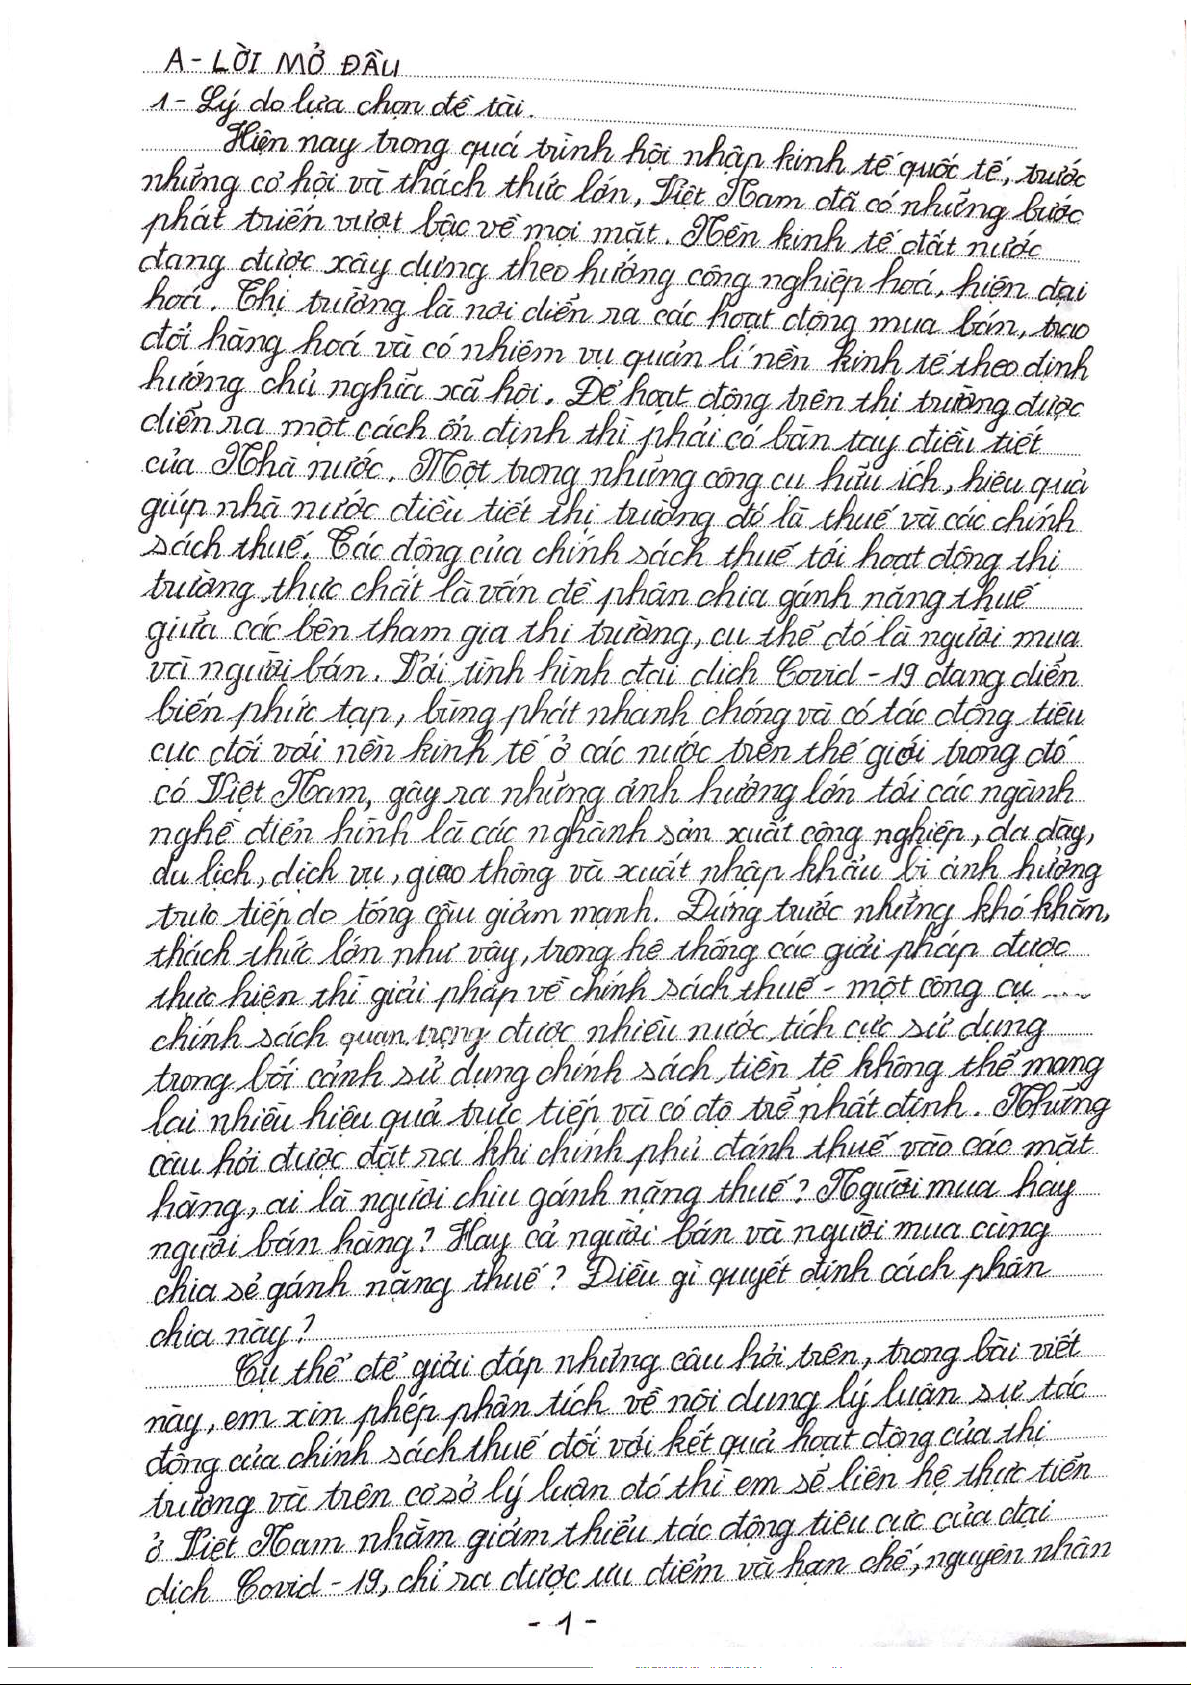 A - LỜI MỞ ĐẦU
1 - Lý do lựa chọn đề tài.
Hiện nay trong quá trình hội nhập kinh tế quốc tế, trước
những cơ hội và thách thức lớn, Việt Nam đã có những bước
phát triển vượt bậc về mọi mặt. Nền kinh tế đất nước
đang được xây dựng theo hướng công nghiệp hoá, hiện đại
hoá. Thị trường là nơi diễn ra các hoạt động mua bán, trao
đổi hàng hoá và có nhiệm vụ quản lí nền kinh tế theo định
hướng chủ nghĩa xã hội. Để hoạt động trên thị trường được
diễn ra một cách ổn định thì phải có bàn tay điều tiết
của Nhà nước. Một trong những công cụ hữu ích, hiệu quả
giúp nhà nước điều tiết thị trường đó là thuế và các chính
sách thuế. Tác động của chính sách thuế tới hoạt động thị
trường thực chất là vấn đề phân chia gánh nặng thuế
giữa các bên tham gia thị trường, cụ thể đó là người mua
và người bán. Với tình hình đại dịch Covid - 19 đang diễn
biến phức tạp, bùng phát nhanh chóng và có tác động tiêu
cực đối với nền kinh tế ở các nước trên thế giới trong đó
có Việt Nam, gây ra những ảnh hưởng lớn tới các ngành
nghề điển hình là các nghành sản xuất công nghiệp, da dày,
du lịch, dịch vụ, giao thông và xuất nhập khẩu bị ảnh hưởng
trực tiếp do tổng cầu giảm mạnh. Đứng trước những khó khăn,
thách thức lớn như vậy, trong hệ thống các giải pháp được
thực hiện thì giải pháp về chính sách thuế - một công cụ
chính sách quan trọng được nhiều nước tích cực sử dụng
trong bối cảnh sử dụng chính sách tiền tệ không thể mang
lại nhiều hiệu quả trực tiếp và có độ trễ nhất định. Những
câu hỏi được đặt ra khi chính phủ đánh thuế vào các mặt
hàng, ai là người chịu gánh nặng thuế? Người mua hay
người bán hàng? Hay cả người bán và người mua cùng
chia sẻ gánh nặng thuế? Điều gì quyết định cách phân
chia này?
Cụ thể để giải đáp những câu hỏi trên, trong bài viết
này, em xin phép phân tích về nội dung lý luận sự tác
động của chính sách thuế đối với kết quả hoạt động của thị
trường và trên cơ sở lý luận đó thì em sẽ liên hệ thực tiễn
ở Việt Nam nhằm giảm thiểu tác động tiêu cực của đại
dịch Covid - 19, chỉ ra được ưu điểm và hạn chế, nguyên nhân
- 1 -